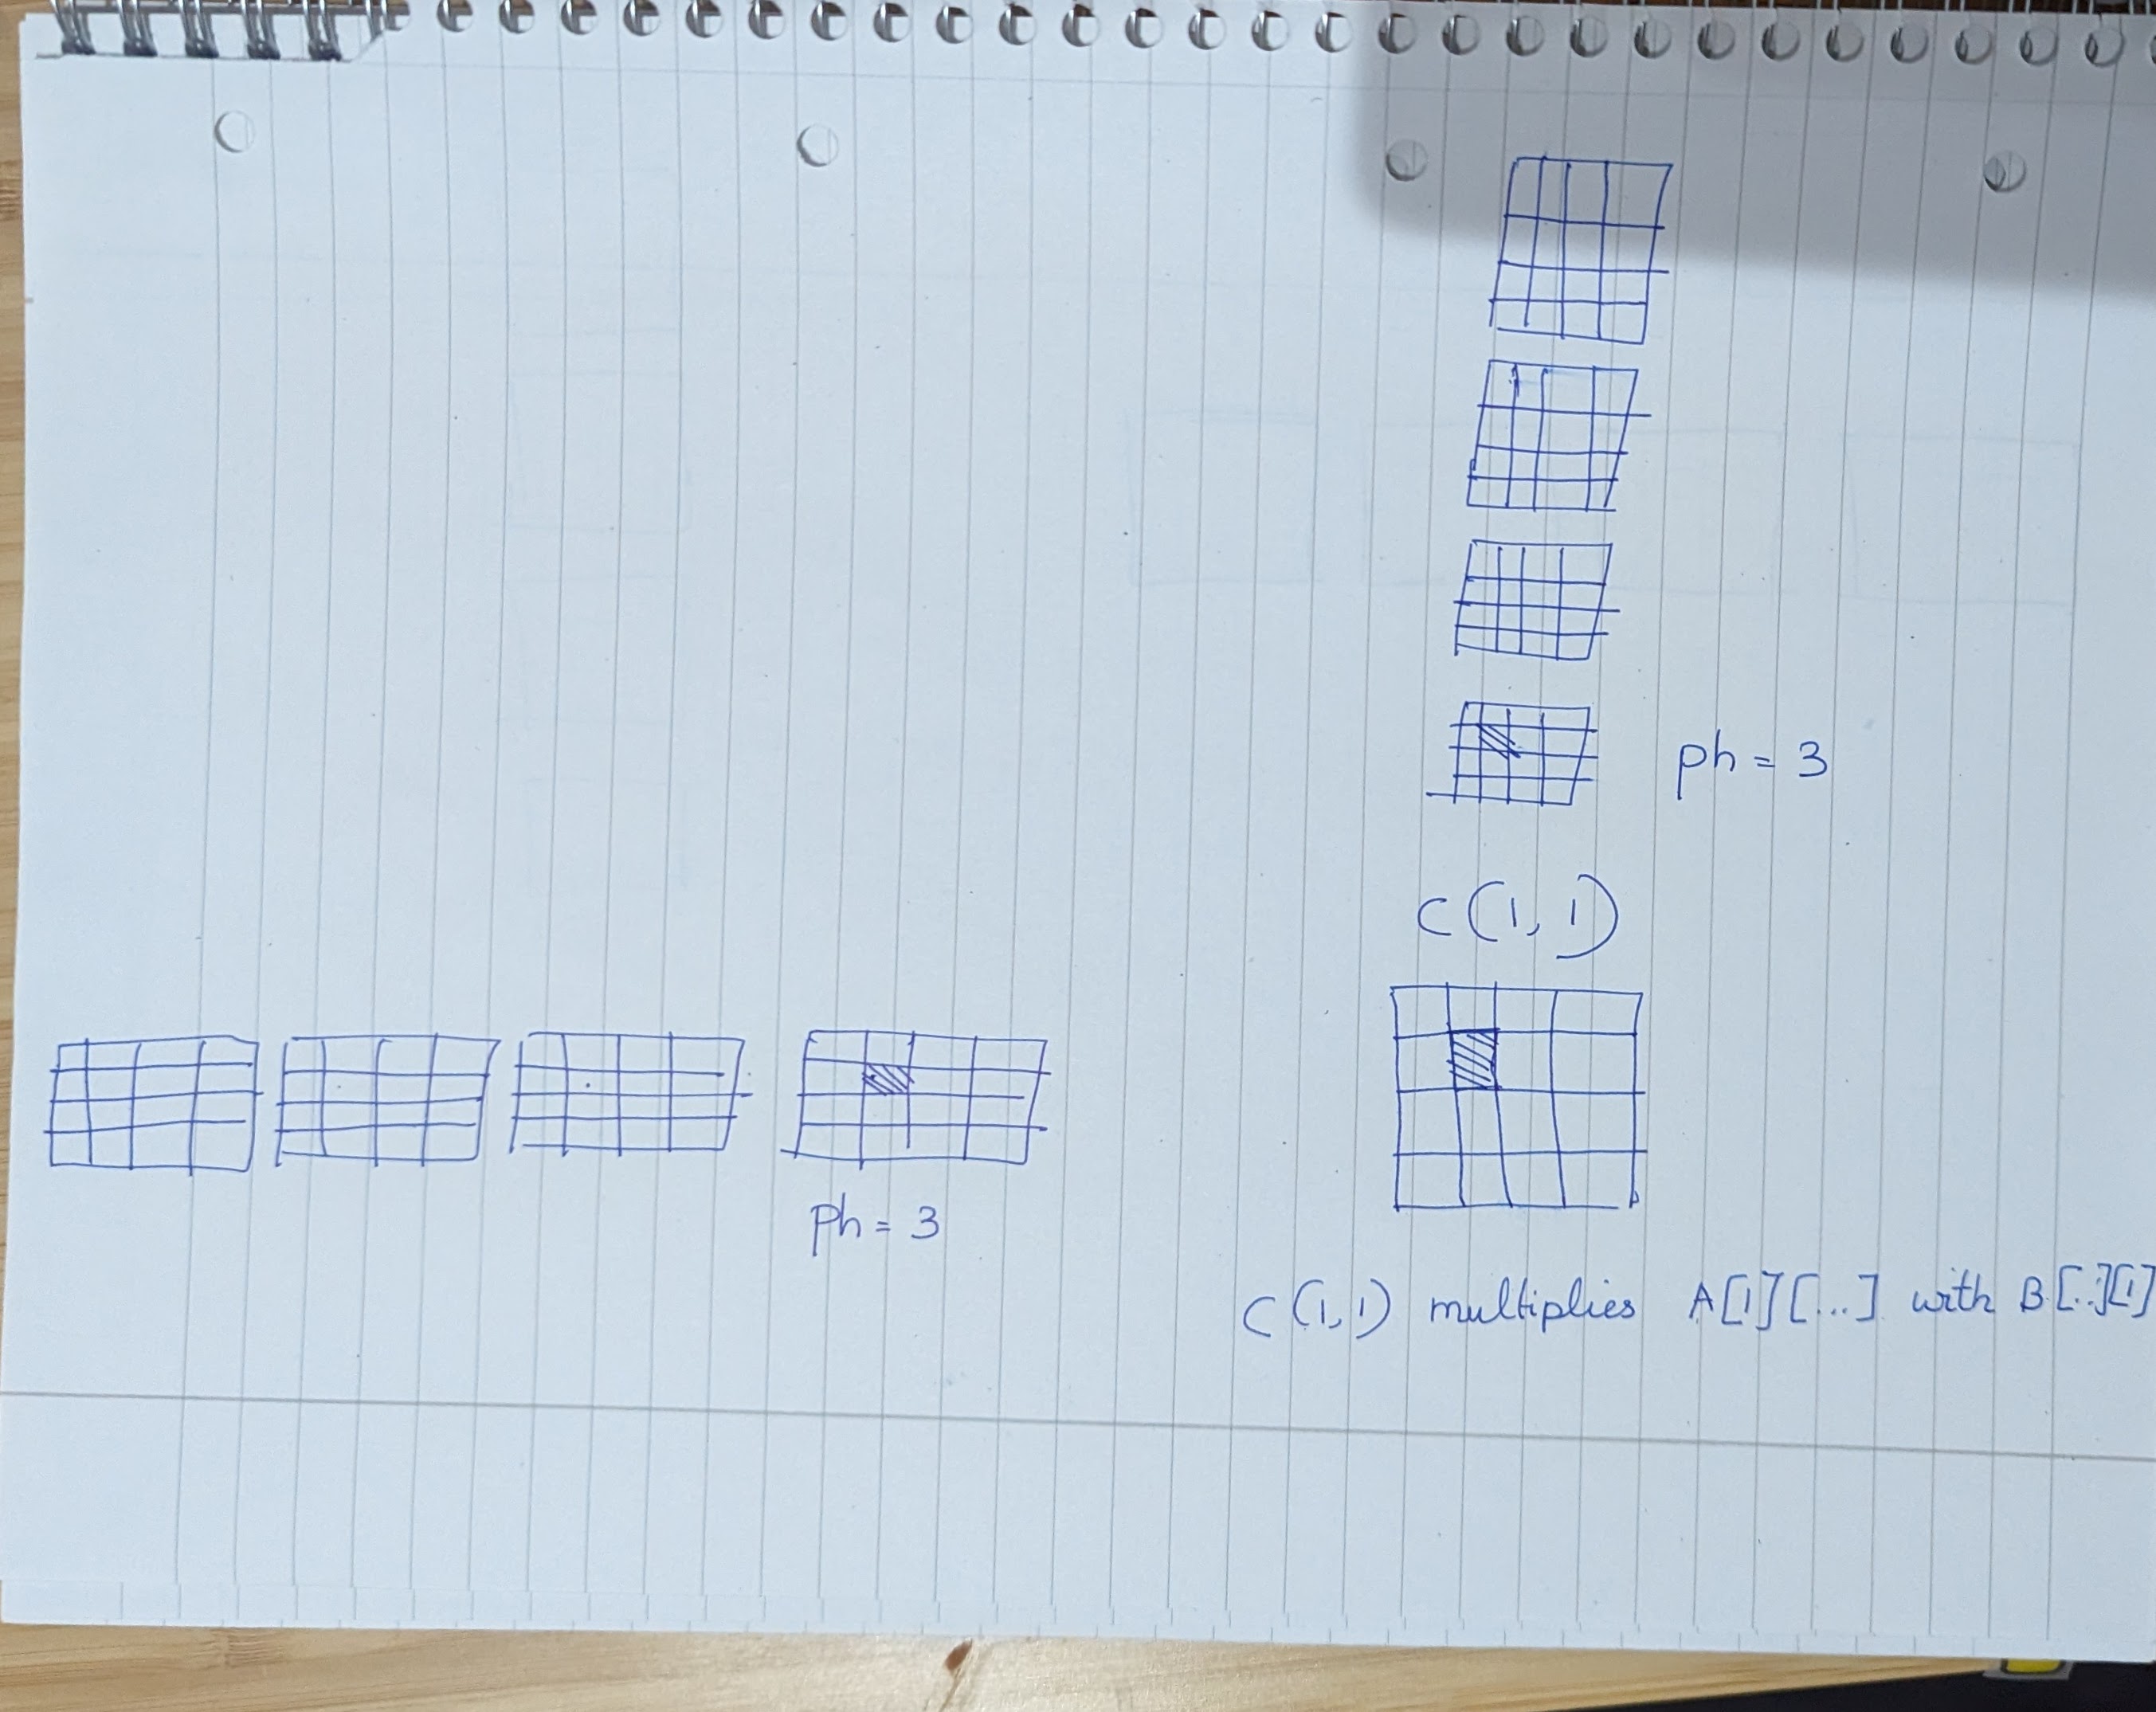 ph = 3
C(1, 1)
Ph = 3
C(1,1) multiplies A[1][...] with B[..][1]